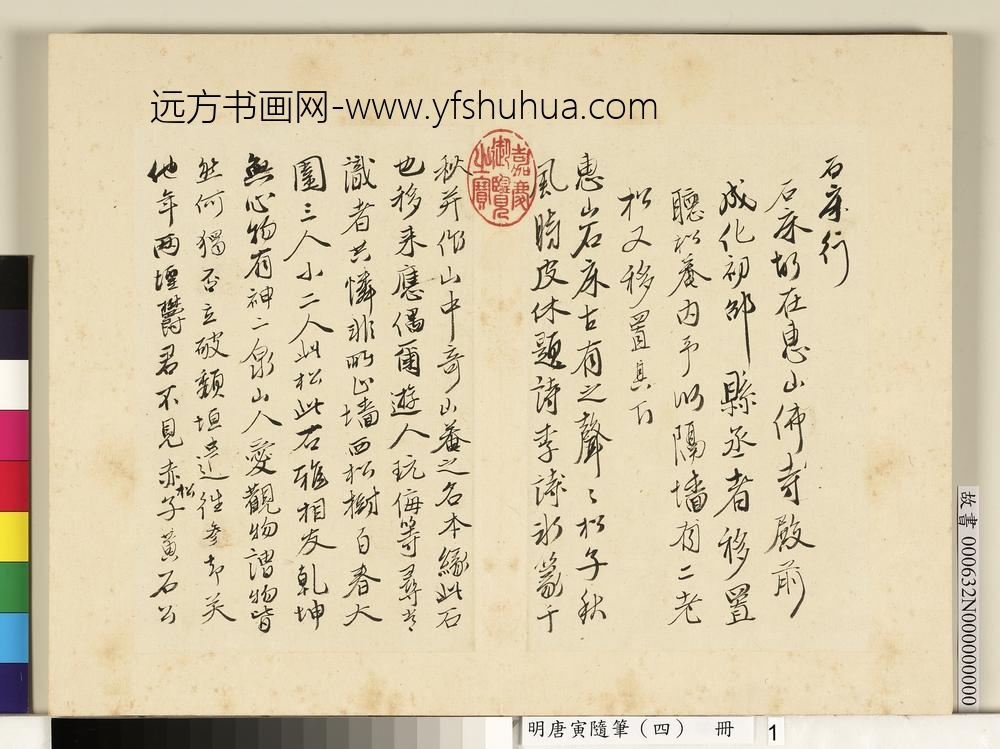 远方书画网-www.yfshuhua.com
石床行
石床旧在惠山佛寺殿前
成化初邵縣丞者移置
聽松菴内予以隔墻有二老
松又移置其下
惠山石床古有之聲〻松子秋
風時皮休題詩李詠冰篆千
秋并作山中奇山菴之名本緣此石
也移来應偶爾遊人玩侮等尋常
識者共憐非所止墻西松樹百春大
圍三人小二人此松此石雅相友乾坤
無心物有神二泉山人愛觀物謂物皆
然何獨否立破頹垣逕往參却笑
他年兩堙鬱君不見赤松子黃石公
嘉慶御覽之寶
故書 000632N000000000
明唐寅隨筆（四） 冊 1